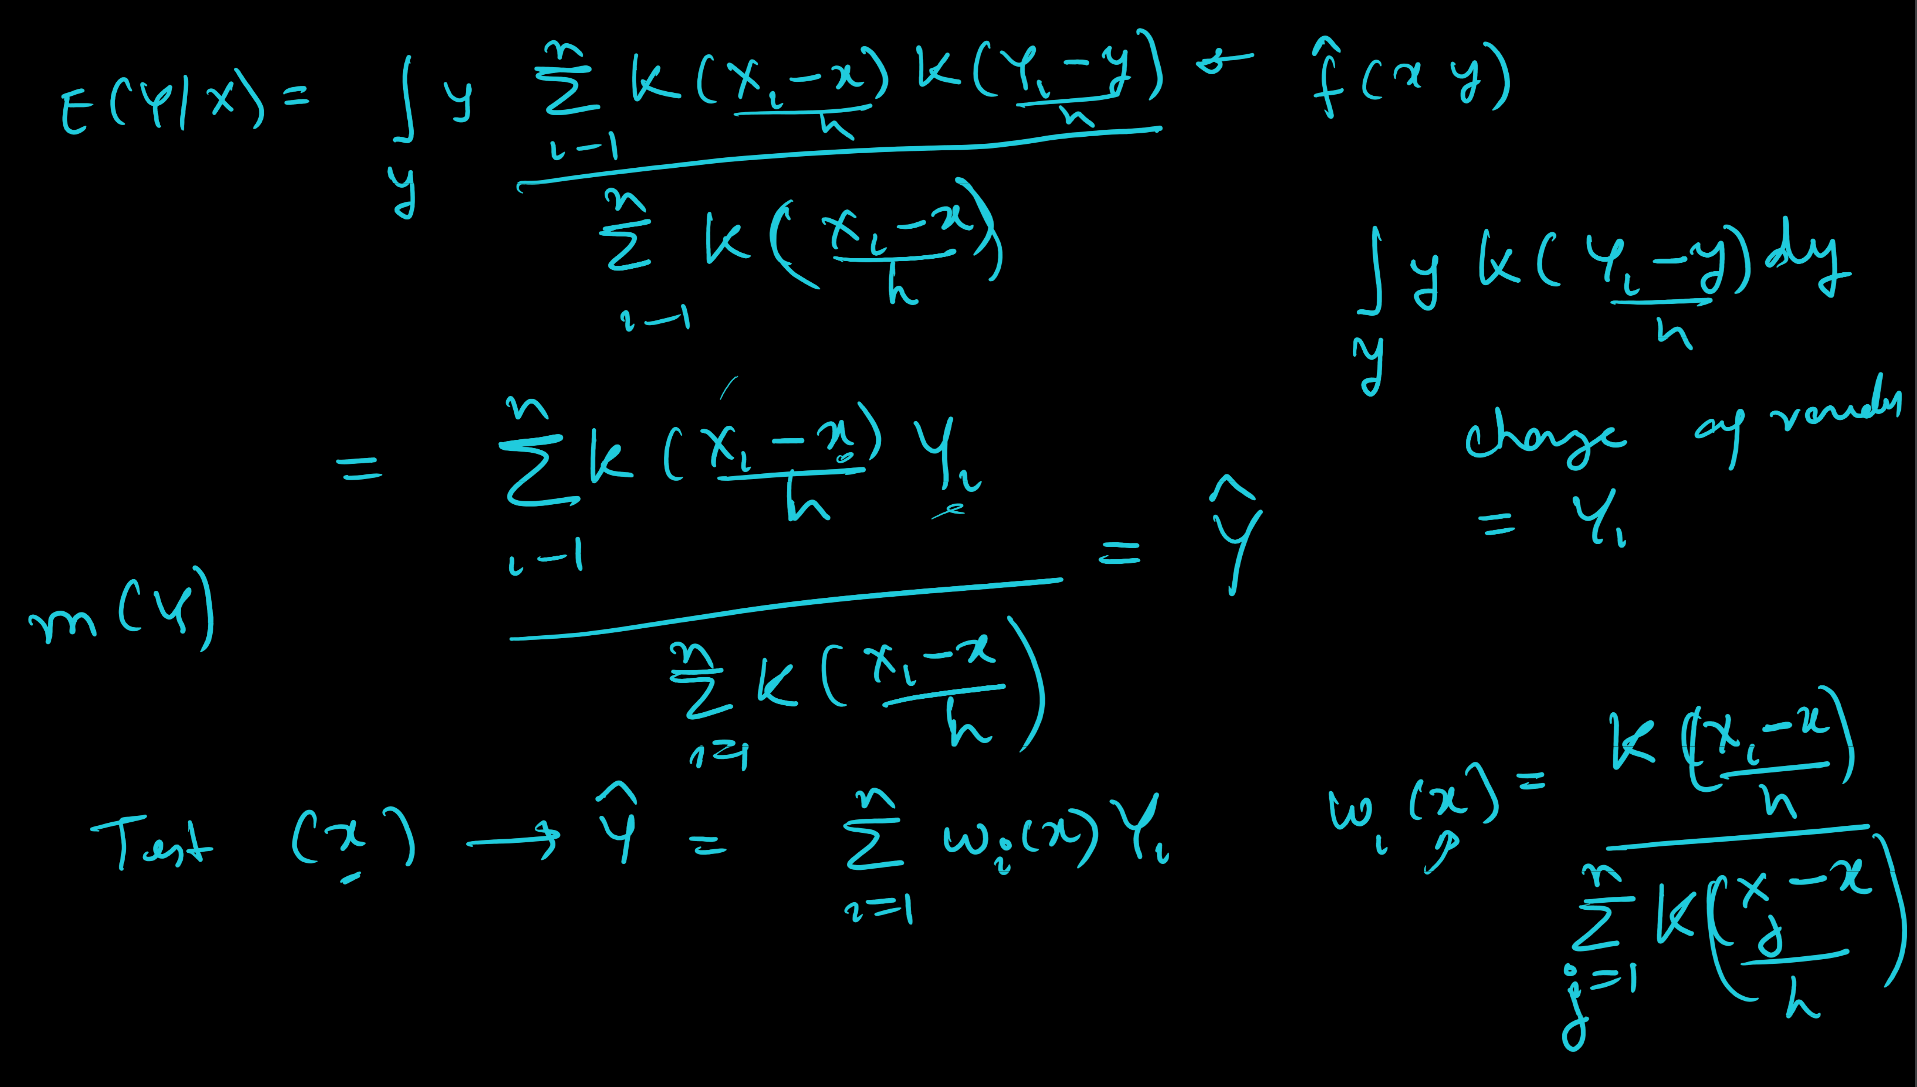 E(Y|X) = ∫_y y \frac{\sum_{i-1}^{n} K(\frac{X_i - x}{h}) K(\frac{Y_i - y}{h})}{\sum_{i-1}^{n} K(\frac{X_i - x}{h})} ← \hat{f}(x y)
∫_y y K(\frac{Y_i - y}{h}) dy
change of
= Y_i
= \frac{\sum_{i-1}^{n} K(\frac{X_i - x}{h}) Y_i}{\sum_{i=1}^{n} K(\frac{X_i - x}{h})} = \hat{Y}
m(Y)
Test (x) → \hat{Y} = \sum_{i=1}^{n} w_i(x) Y_i
w_i(x) = \frac{K(\frac{X_i - x}{h})}{\sum_{j=1}^{n} K(\frac{X_j - x}{h})}